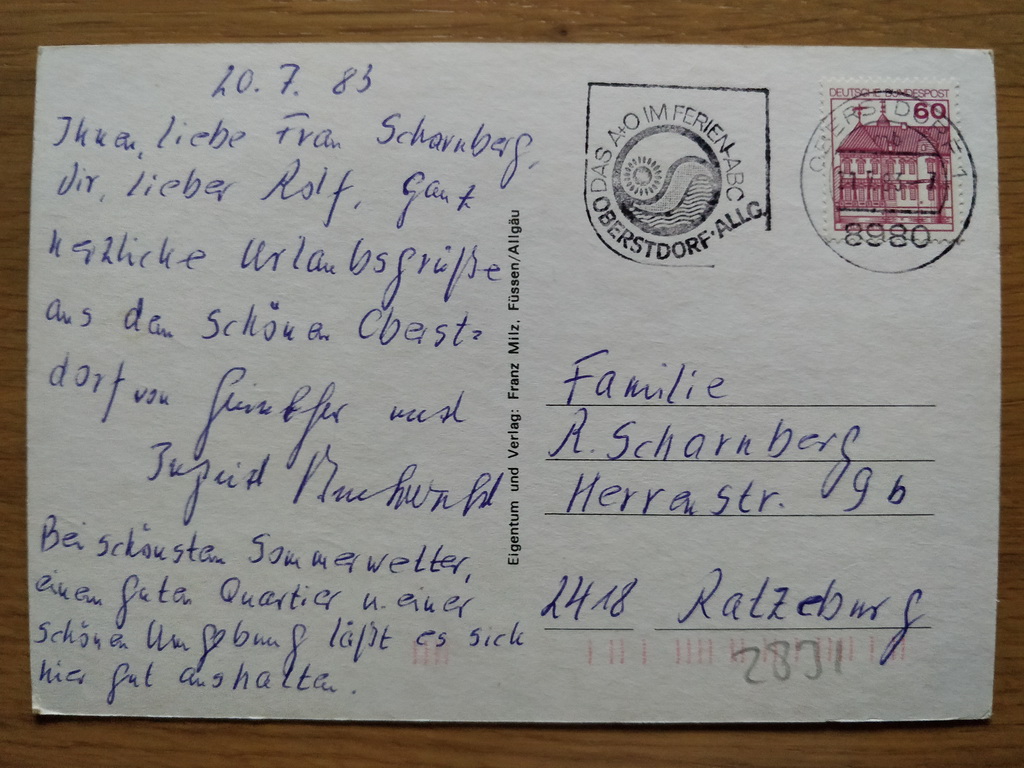 20. 7. 83
Ihnen, liebe Frau Scharnberg,
dir, lieber Rolf, ganz
herzliche Urlaubsgrüße
aus dem schönen Oberst=
dorf von Günther und
Ingrid Buchwald
Bei schönstem Sommerwetter,
einem guten Quartier u. einer
schönen Umgebung läßt es sich
hier gut aushalten.
Eigentum und Verlag: Franz Milz, Füssen/Allgäu
DAS A+O IM FERIEN-ABC
OBERSTDORF·ALLG.
DEUTSCHE BUNDESPOST
60
OBERSTDORF 1
8980
Familie
R. Scharnberg
Herrenstr. 9b
2418 Ratzeburg
2891